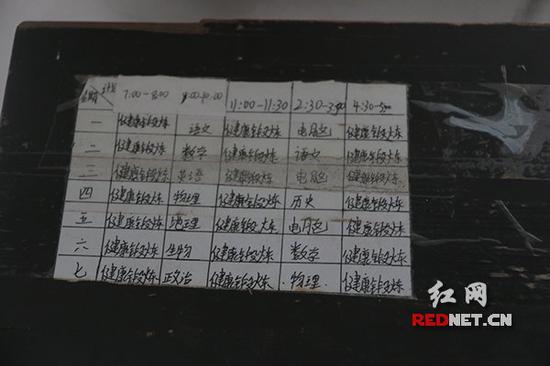 星期 7:00-8:00 9:00-10:00 11:00-11:30 2:30-3:30 4:30-5:00
一 健康锻炼 语文 健康锻炼 电脑 健康锻炼
二 健康锻炼 数学 健康锻炼 语文 健康锻炼
三 健康锻炼 英语 健康锻炼 电脑 健康锻炼
四 健康锻炼 物理 健康锻炼 历史 健康锻炼
五 健康锻炼 地理 健康锻炼 电脑 健康锻炼
六 健康锻炼 生物 健康锻炼 数学 健康锻炼
七 健康锻炼 政治 健康锻炼 物理 健康锻炼
红网
REDNET.CN